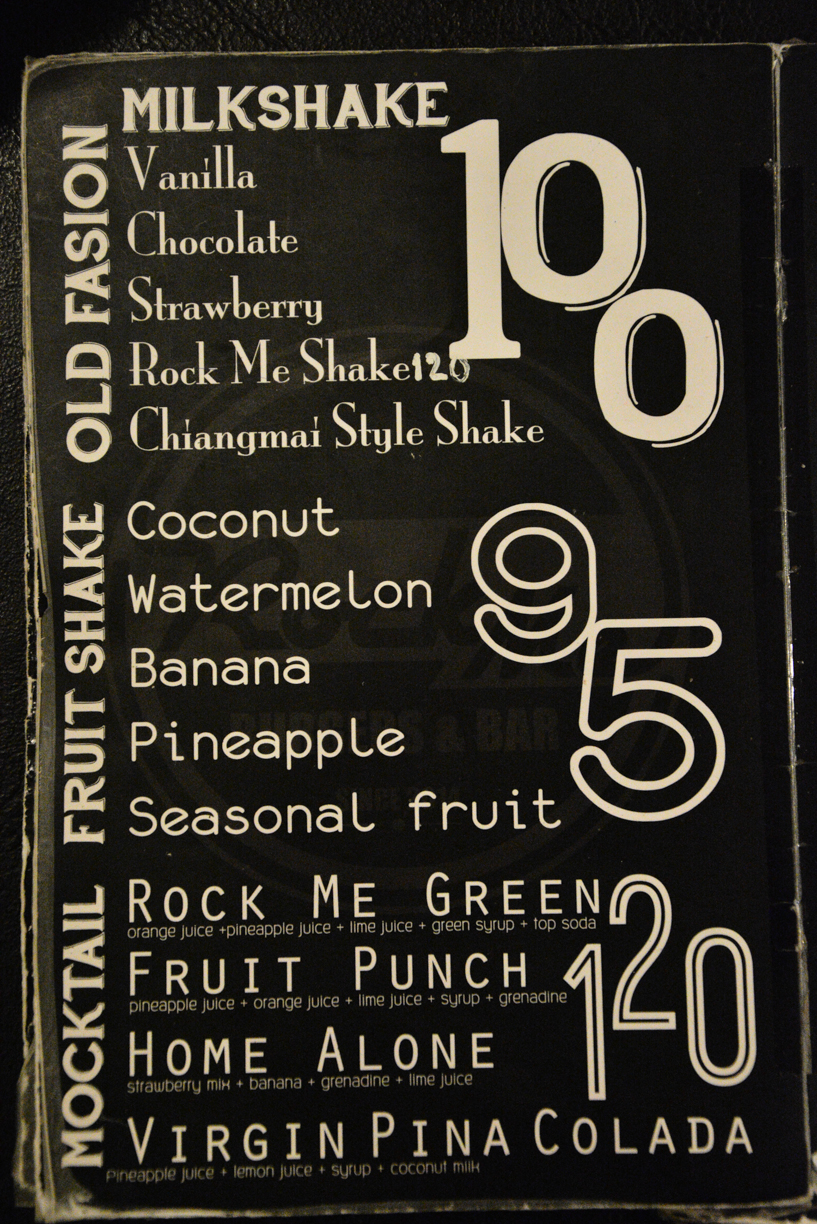 OLD FASION
MILKSHAKE
100
Vanilla
Chocolate
Strawberry
Rock Me Shake 120
Chiangmai Style Shake
FRUIT SHAKE
95
Coconut
Watermelon
Banana
Pineapple
Seasonal fruit
MOCKTAIL
120
ROCK ME GREEN
orange juice +pineapple juice + lime juice + green syrup + top soda
FRUIT PUNCH
pineapple juice + orange juice + lime juice + syrup + grenadine
HOME ALONE
strawberry mix + banana + grenadine + lime juice
VIRGIN PINA COLADA
Pineapple juice + lemon juice + syrup + coconut milk
Rock Me
BURGERS & BAR